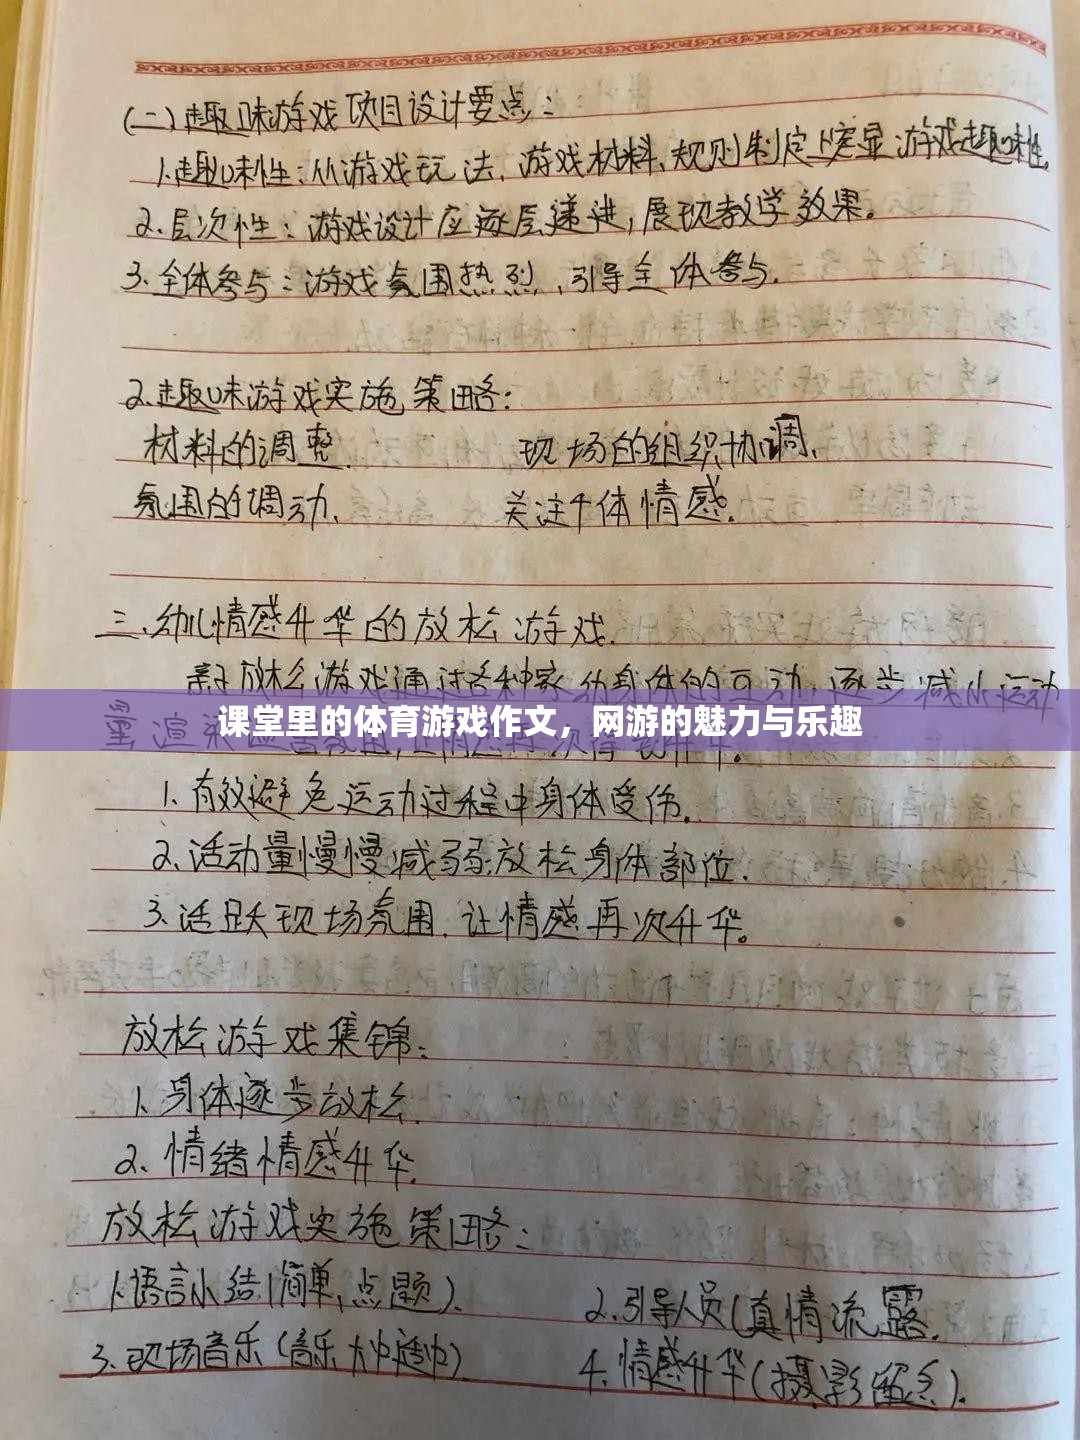 (二)趣味游戏项目设计要点:
1.趣味性:从游戏玩法、游戏材料、规则制定上突显游戏趣味性。
2.层次性:游戏设计应逐层递进,展现教学效果。
3.全体参与:游戏氛围热烈、引导全体参与.
2.趣味游戏实施策略:
材料的调整. 现场的组织协调、
氛围的调动、 关注个体情感.
三.幼儿情感升华的放松游戏.
亲子放松游戏通过各种家幼身体的互动,逐步减小运动
量渲染
课堂里的体育游戏作文，网游的魅力与乐趣
1.有效避免运动过程中身体受伤.
2.活动量慢慢减弱放松身体部位.
3.活跃现场氛围.让情感再次升华。
放松游戏集锦:
1.身体逐步放松.
2.情绪情感升华.
放松游戏实施策略:
1.语言小结(简单,点题). 2.引导人员(真情流露.
3.现场音乐(音乐 4.情感升华(摄影留念).